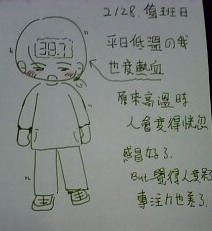 2/28. 值班日
39.7
平日低溫の我
也變熱血
原來高溫時
人會變得恍忽
感冒好了.
But 覺得人變呆
專注力也差了.